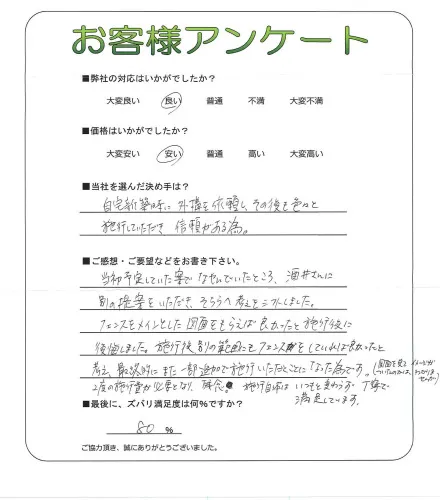 お客様アンケート
■弊社の対応はいかがでしたか?
大変良い 良い 普通 不満 大変不満
■価格はいかがでしたか?
大変安い 安い 普通 高い 大変高い
■当社を選んだ決め手は?
自宅新築時に外構を依頼し、その後も色々と
施行していただき 信頼がある為。
■ご感想・ご要望などをお書き下さい。
当初予定していた案でなやんでいたところ、酒井さんに
別の提案をいただき、そちらへ考えをシフトしました。
フェンスをメインとした図面をもらえば良かったと施行後に
後悔しました。施行後、別の範囲もフェンスをしていれば良かったと
考え、最終的にまた一部追加で施行いただくことになった為です。
(図面を見てイメージが
2度の施行費が必要となり、残念。施行自体はいつもと変わらず丁寧で
満足しています。
■最後に、ズバリ満足度は何%ですか?
80 %
ご協力頂き、誠にありがとうございました。